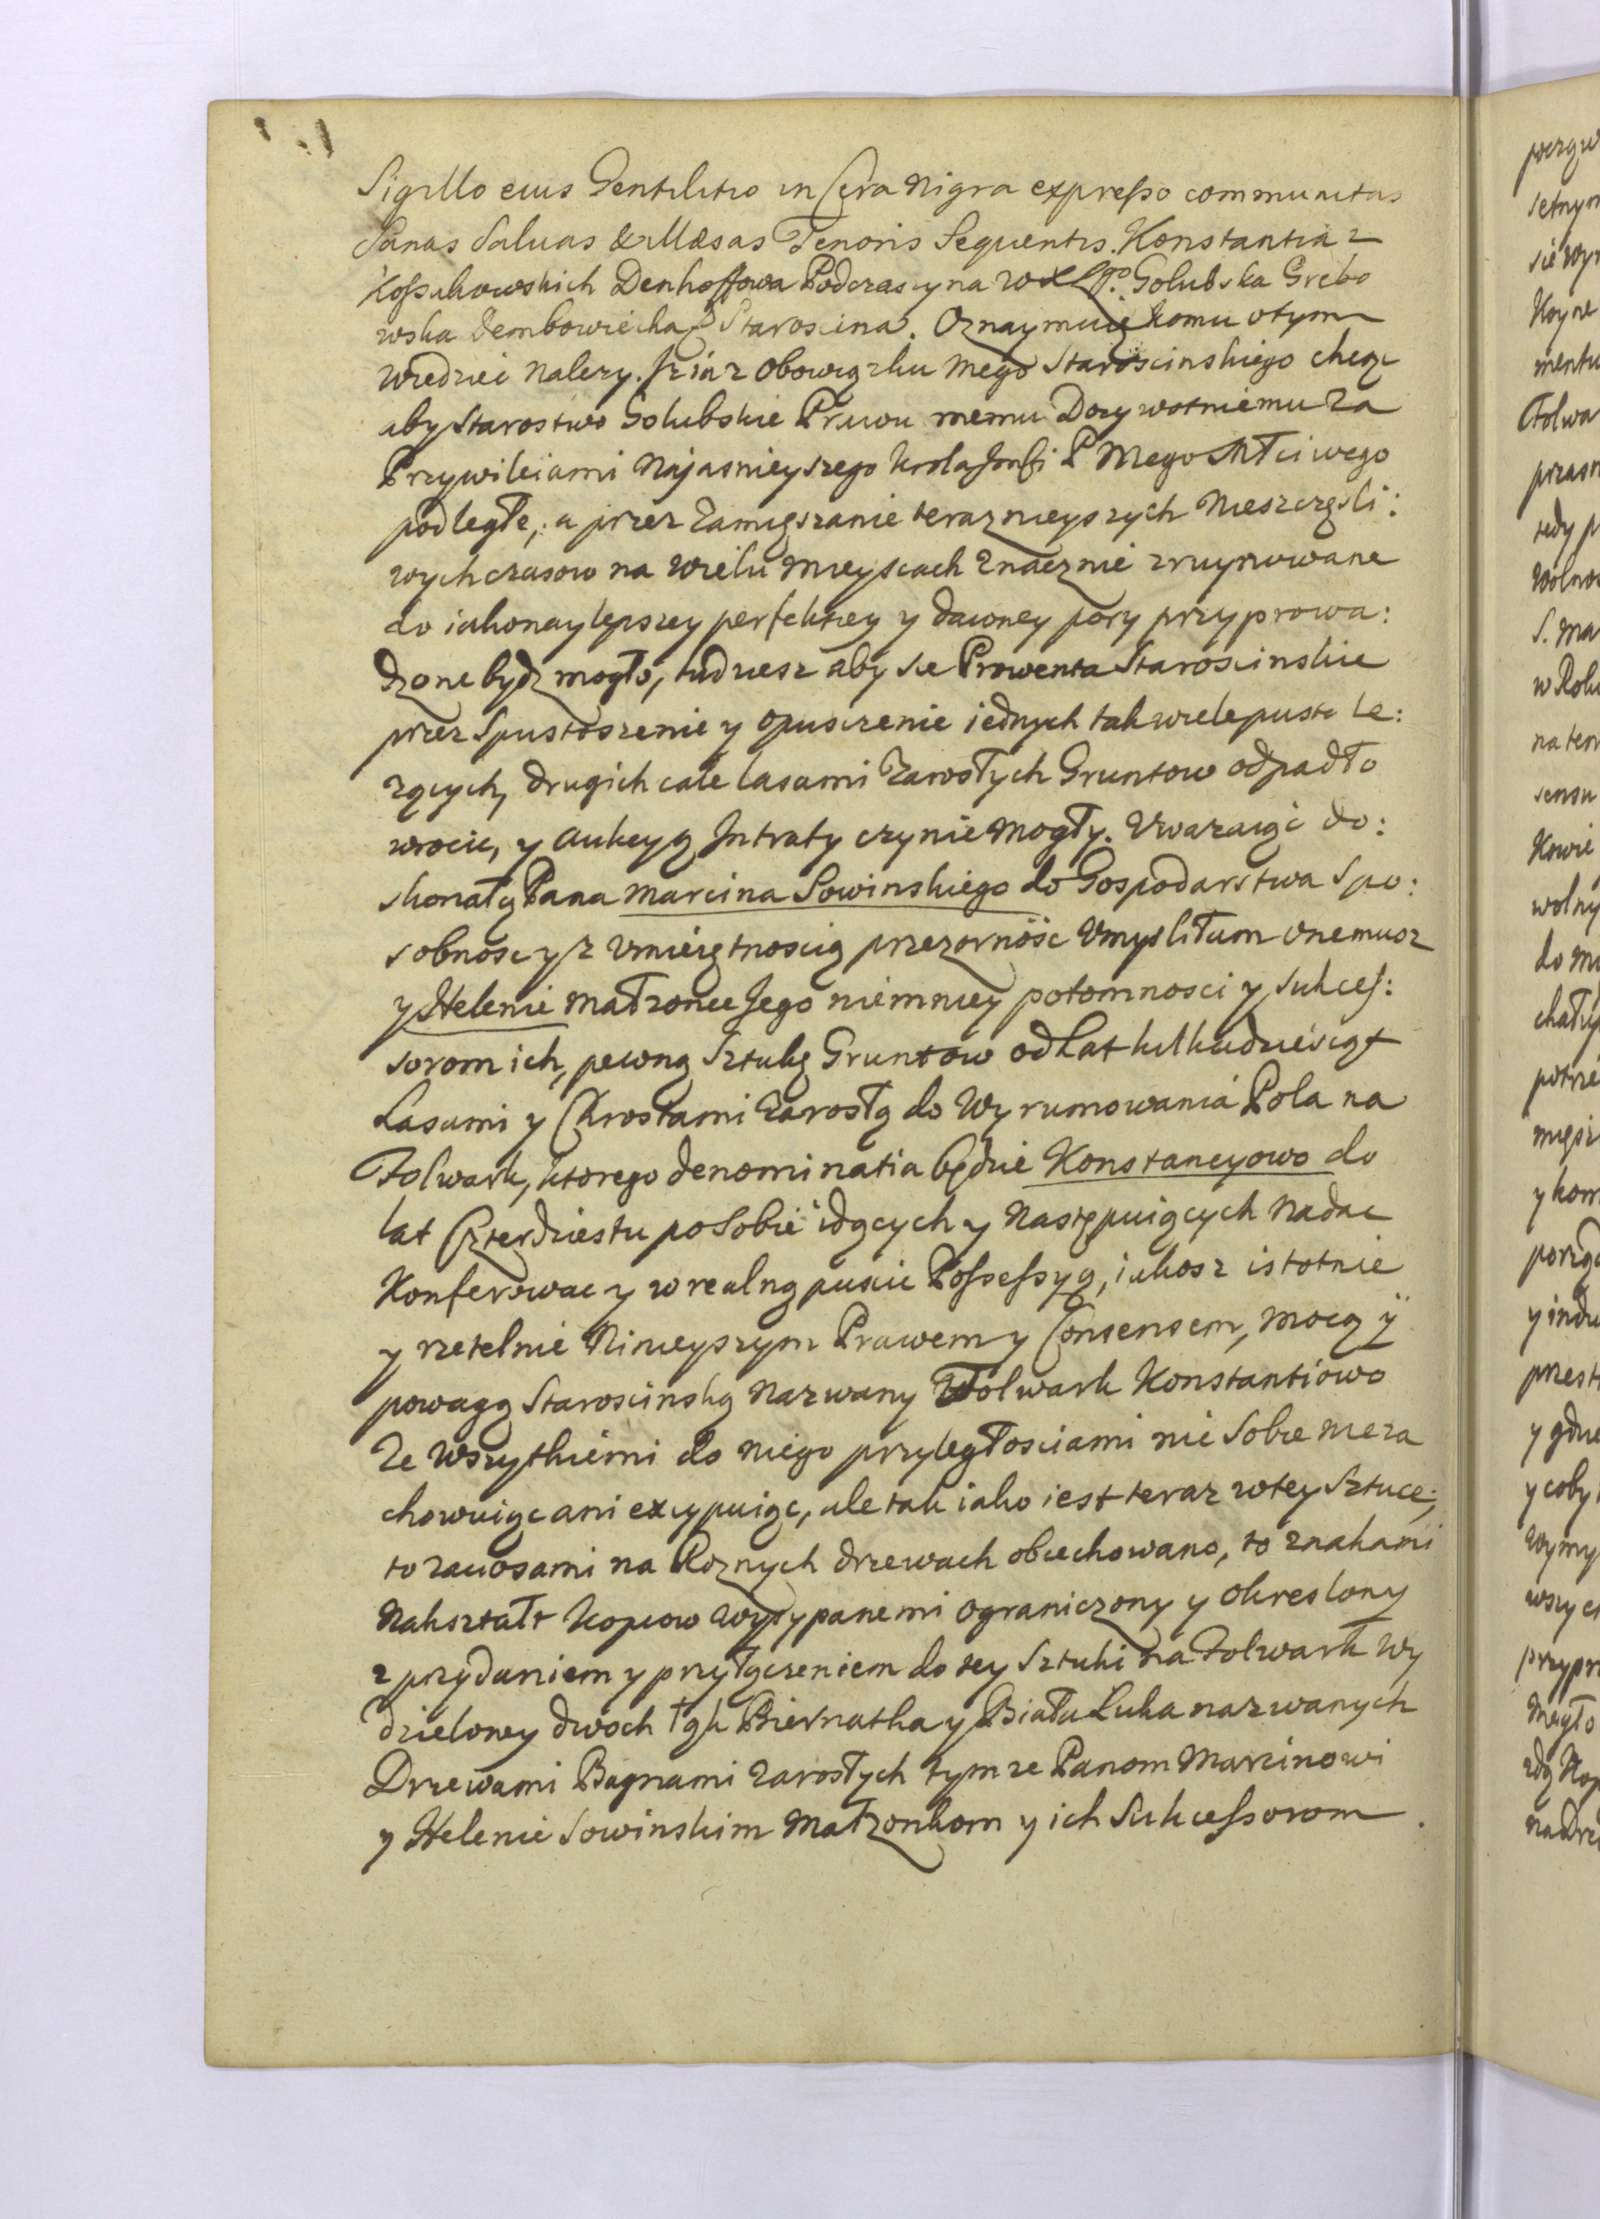 Sigillo eius Gentilitio in Cera Nigra expresso communitas
Sanas Saluas & Illæsas Tenoris Sequentis. Konstantia z
Kossakowskich Denhoffowa Podczaszyna WXLgo. Golubska Grebo
wska Dembowiecka & Staroscina. Oznaymuię komu o tym
wiedziec nalezy. Jz ia z Obowiązku mego Staroscinskiego chcąc
aby Starostwo Golubskie Prawu memu Dozywotniemu za
Przywileiami Najasnieyszego Krola Jmści P Mego Młciwego
podległe, a przez Zamięszanie teraznieyszych Nieszczęsli:
wych czasow na wielu mieyscach znacznie zruynowane
do iakonaylepszey perfekcyey y dawney pory przyprowa:
dzone bydz mogło, tudziesz aby sie Prowenta Staroscinskie
przez Spustoszenie y opuszczenie iednych tak wiele pusto le:
zących, drugich cale lasami Zarosłych Gruntow odpadło
wrocic, y aukcyą Jntraty czynic mogły. Uwazaiąc do:
skonałą Pana Marcina Sowinskiego do Gospodarstwa Spo:
sobnosc y z umieiętnoscią przezornosc Umyslilam onemusz
y Helenie Małzonce Jego niemniey potomnosci y Sukces:
sorom ich, pewną Sztukę Gruntow od Lat kilkudziesiąt
Lasami y Chrostami Zarosłą do Wyrumowania Pola na
Folwark, ktorego denominatia będzie Konstancyowo do
lat Czterdziestu po Sobie idących y Następuiących Nadac
Konferowac y w realną puscic Possessyą, iakosz istotnie
y rzetelnie Ninieyszym Prawem y Consensem, mocą y
powagą Staroscinską Nazwany Folwark Konstantiowo
Ze wszytkiemi do niego przyległosciami nic Sobie nieza
chowuiąc ani excypuiąc, ale tak iako iest teraz w tey Sztuce,
to zaciosami na Roznych drzewach obcechowano, to znakami
Nakształt Kopcow wysypanemi ograniczony y okreslony
z przydaniem y przyłączeniem do tey Sztuki na Folwark Wy
dzieloney dwoch łąk Biernatka y Biała Luka nazwanych
Drzewami Bagnami zarosłych tymze Panom Marcinowi
y Helenie Sowinskim Małzonkom y ich Sukcessorom